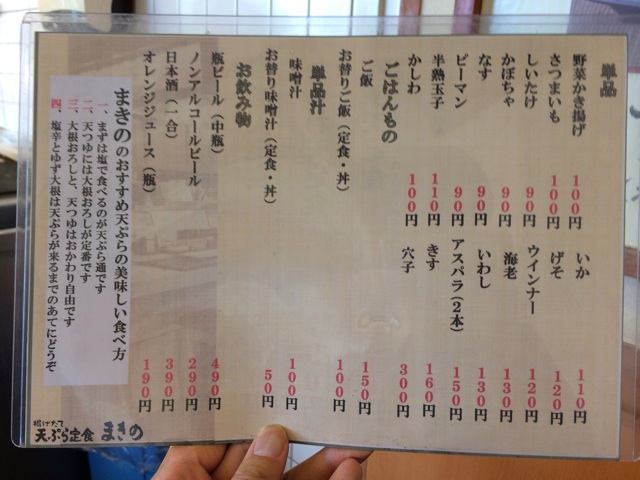 単品
野菜かき揚げ 100円 いか 110円
さつまいも 100円 げそ 120円
しいたけ 90円 ウインナー 120円
かぼちゃ 90円 海老 130円
なす 90円 いわし 130円
ピーマン 90円 アスパラ(2本) 150円
半熟玉子 110円 きす 160円
かしわ 100円 穴子 300円
ごはんもの
ご飯 150円
お替りご飯(定食・丼) 100円
単品汁
味噌汁 100円
お替り味噌汁(定食・丼) 50円
お飲み物
瓶ビール(中瓶) 490円
ノンアルコールビール 290円
日本酒(一合) 390円
オレンジジュース(瓶) 190円
まきののおすすめ天ぷらの美味しい食べ方
一、まずは塩で食べるのが天ぷら通です
二、天つゆには大根おろしが定番です
三、大根おろしと、天つゆはおかわり自由です
四、塩辛とゆず大根は天ぷらが来るまでのあてにどうぞ
揚げたて
天ぷら定食 まきの